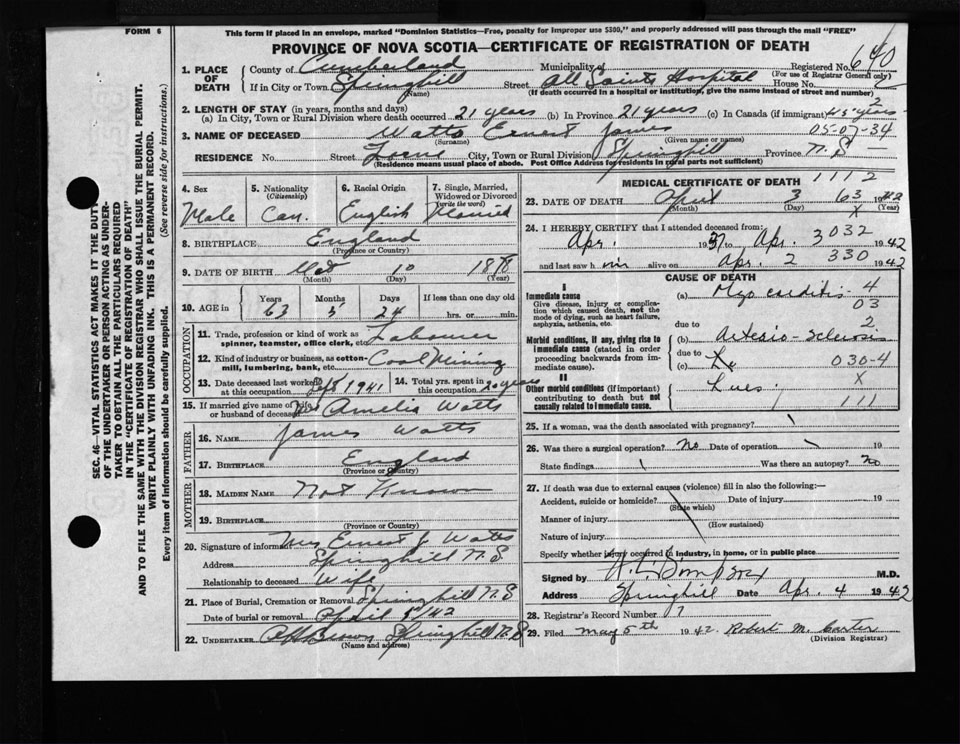 FORM 6
This form if placed in an envelope, marked "Dominion Statistics—Free, penalty for improper use $300", and properly addressed will pass through the mail "FREE"
PROVINCE OF NOVA SCOTIA—CERTIFICATE OF REGISTRATION OF DEATH
SEC. 46—VITAL STATISTICS ACT MAKES IT THE DUTY
OF THE UNDERTAKER OR PERSON ACTING AS UNDER-
TAKER TO OBTAIN ALL THE PARTICULARS REQUIRED
IN THE "CERTIFICATE OF REGISTRATION OF DEATH"
AND TO FILE THE SAME WITH THE DIVISION REGISTRAR WHO SHALL ISSUE THE BURIAL PERMIT.
WRITE PLAINLY WITH UNFADING INK. THIS IS A PERMANENT RECORD.
Every item of information should be carefully supplied. (See reverse side for instructions.)
1. PLACE OF DEATH
County of Cumberland Municipality of Registered No. 640
(For use of Registrar General only)
If in City or Town Springhill Street All Saints Hospital House No.
(Name) (If death occurred in a hospital or institution, give the name instead of street and number)
2. LENGTH OF STAY (in years, months and days)
(a) In City, Town or Rural Division where death occurred 21 years (b) In Province 21 years (c) In Canada (if immigrant) years
2
3. NAME OF DECEASED Watts Ernest James 05-07-34
(Surname) (Given name or names)
RESIDENCE No. Street City, Town or Rural Division Springhill Province N.S
(Residence means usual place of abode. Post Office Address for residents in rural parts not sufficient)
4. Sex Male
5. Nationality (Citizenship) Can.
6. Racial Origin English
7. Single, Married, Widowed or Divorced (write the word) Married
8. BIRTHPLACE England
(Province or Country)
9. DATE OF BIRTH 10 1878
(Month) (Day) (Year)
10. AGE in Years Months Days If less than one day old
63 5 24 hrs. or min.
OCCUPATION
11. Trade, profession or kind of work as spinner, teamster, office clerk, etc. Labourer
12. Kind of industry or business, as cotton-mill, lumbering, bank, etc. Coal Mining
13. Date deceased last worked at this occupation Sept 1941 14. Total yrs. spent in this occupation 20 years
15. If married give name of wife or husband of deceased Mrs Amelia Watts
FATHER
16. NAME James Watts
17. BIRTHPLACE England
(Province or Country)
MOTHER
18. MAIDEN NAME Not Known
19. BIRTHPLACE
(Province or Country)
20. Signature of informant Mrs Ernest J Watts
Address Springhill N.S.
Relationship to deceased Wife
21. Place of Burial, Cremation or Removal Springhill N.S
Date of burial or removal April 5/42
22. UNDERTAKER Brown Springhill N.S
(Name and address)
MEDICAL CERTIFICATE OF DEATH 1112
23. DATE OF DEATH April 3 63 1942
(Month) (Day) x (Year)
24. I HEREBY CERTIFY that I attended deceased from:
Apr. 1937 to Apr. 3 032 1942
and last saw him alive on Apr. 2 330 1942
CAUSE OF DEATH
I
Immediate cause
Give disease, injury or complication which caused death, not the mode of dying, such as heart failure, asphyxia, asthenia, etc.
(a) Myocarditis 4
03
due to 2
Morbid conditions, if any, giving rise to immediate cause (stated in order proceeding backwards from immediate cause).
(b) Arterio-sclerosis
due to
(c) 030-4
II
Other morbid conditions (if important) contributing to death but not causally related to immediate cause.
Lues x
111
25. If a woman, was the death associated with pregnancy?
26. Was there a surgical operation? No Date of operation 19
State findings Was there an autopsy? No
27. If death was due to external causes (violence) fill in also the following:—
Accident, suicide or homicide? Date of injury 19
(State which)
Manner of injury
(How sustained)
Nature of injury
Specify whether injury occurred in industry, in home, or in public place
Signed by M.D.
Address Springhill Date Apr. 4 1942
28. Registrar's Record Number 7
29. Filed May 5th 1942. Robert M. Carter
(Division Registrar)